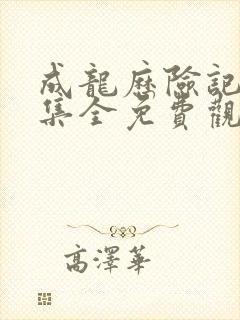 成龍歷險記
集全免費觀
高澤華